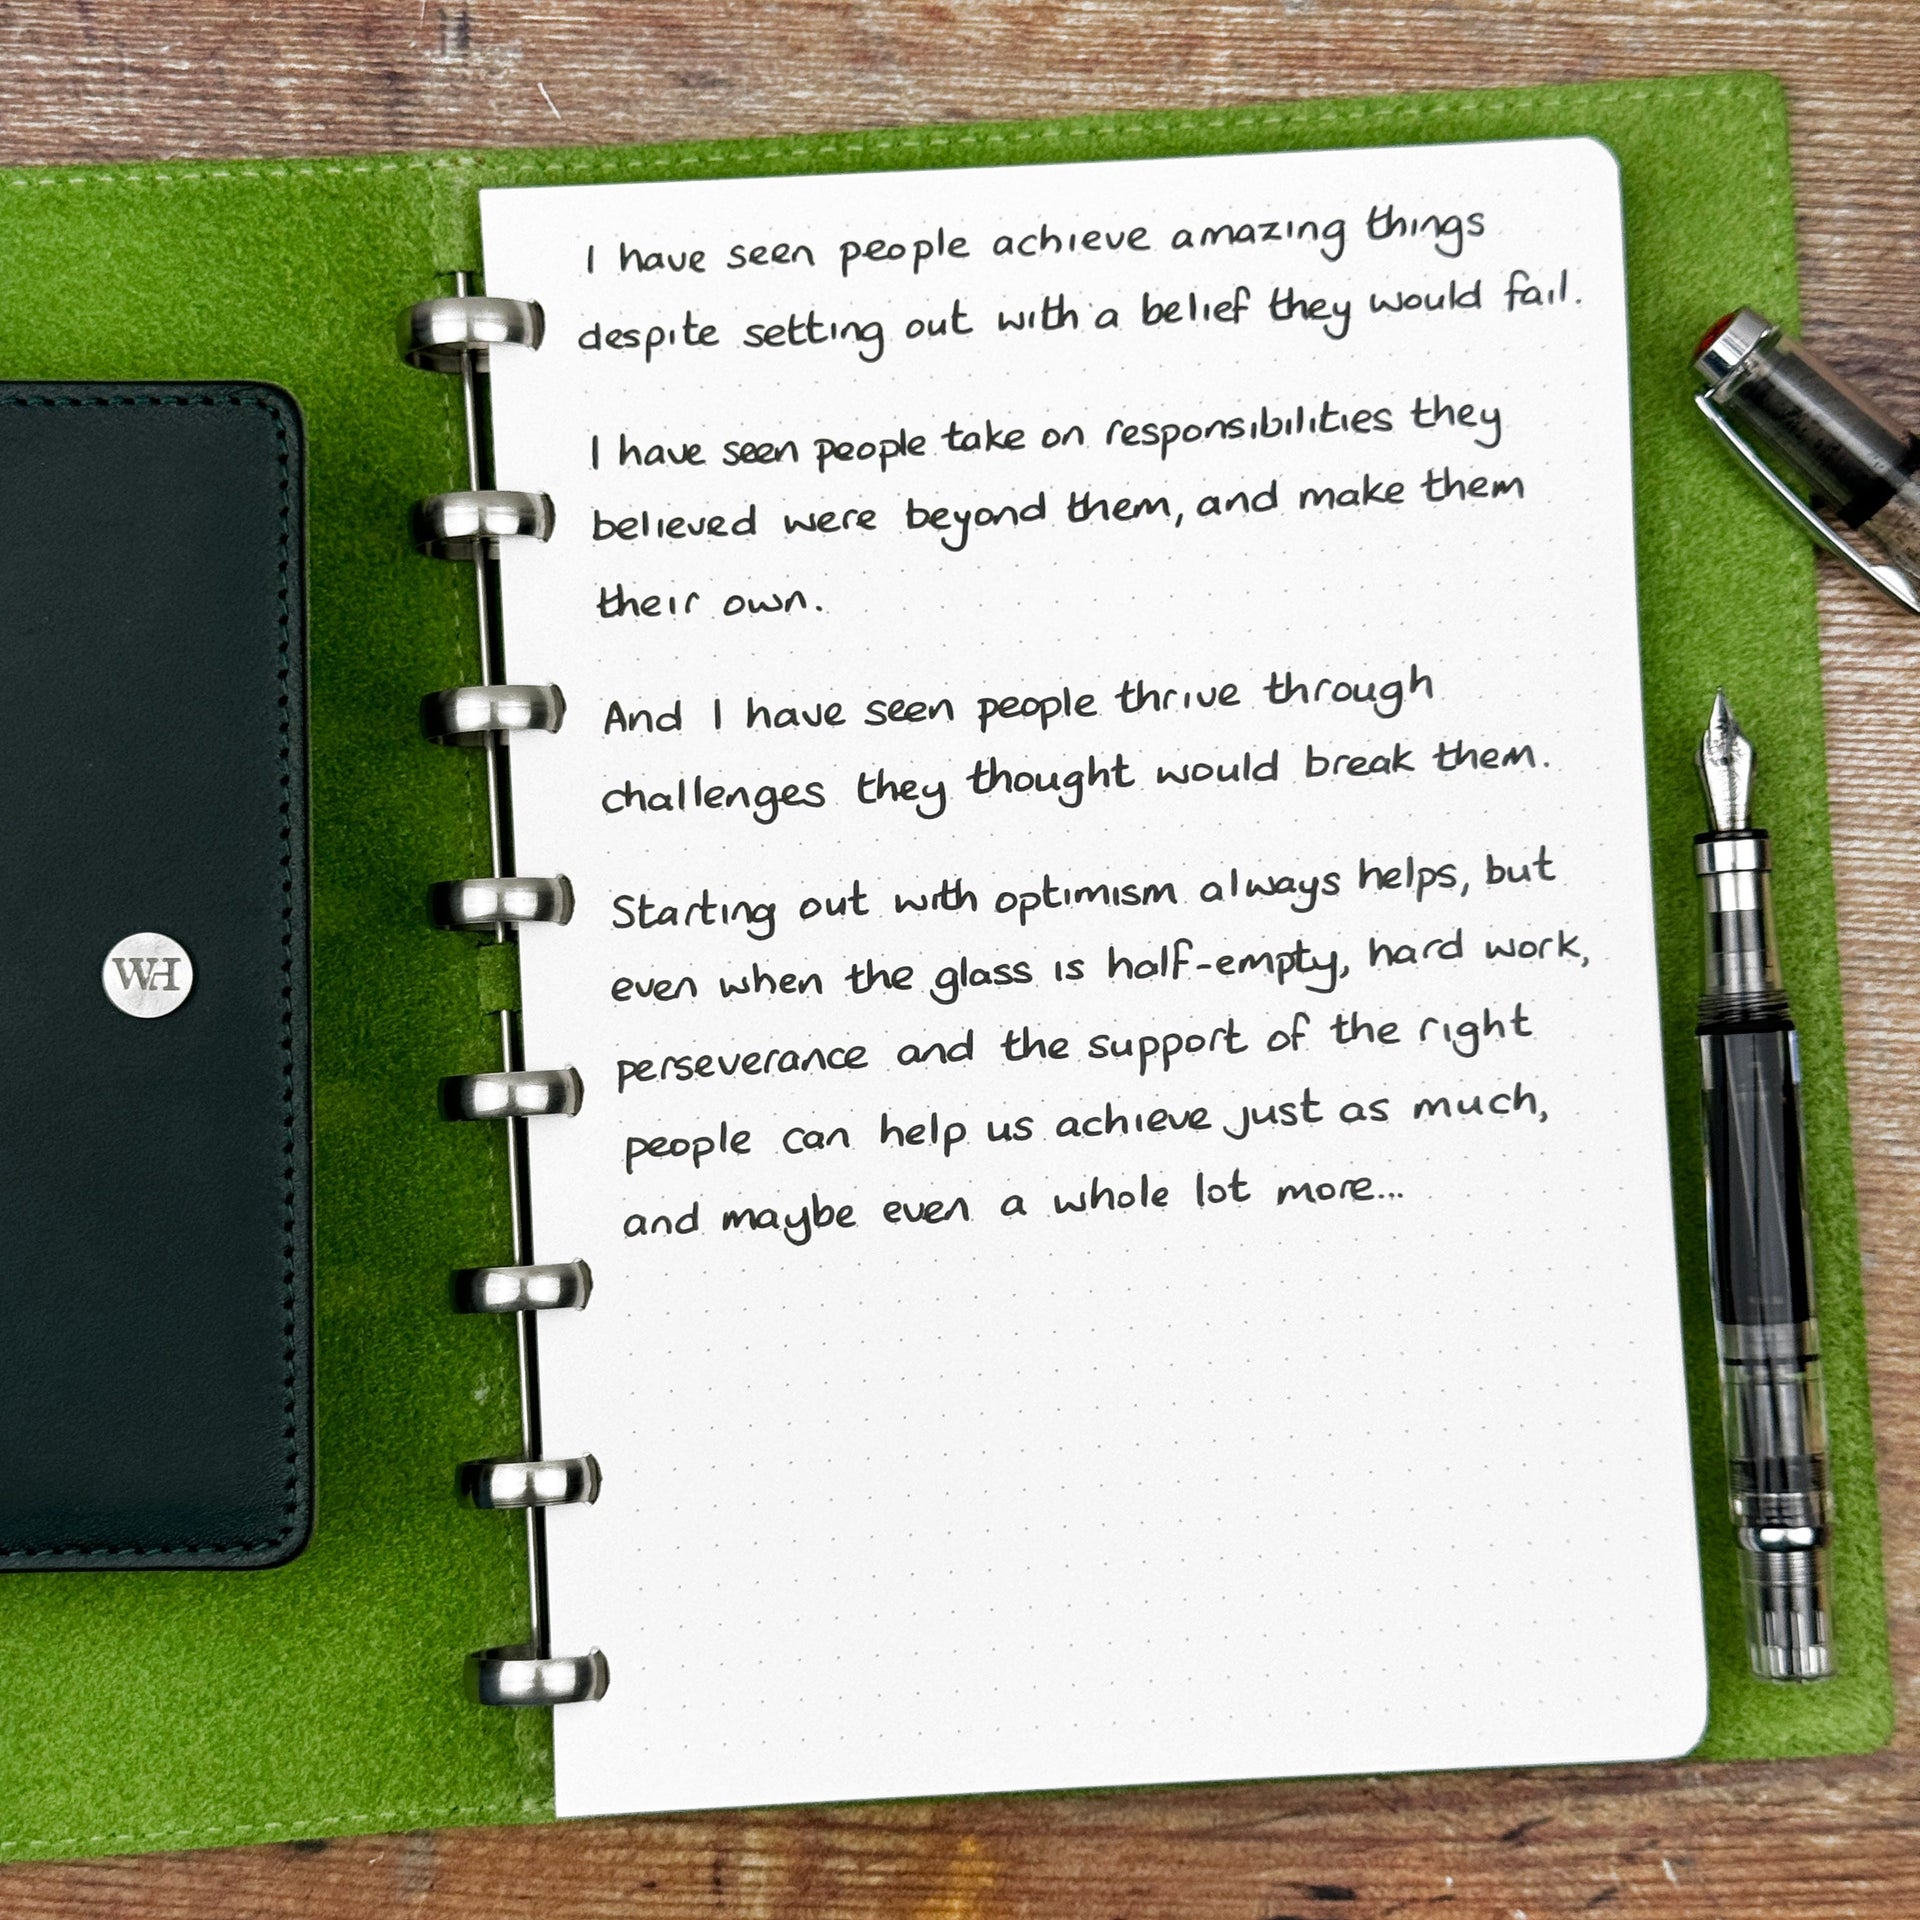 I have seen people achieve amazing things
despite setting out with a belief they would fail.
I have seen people take on responsibilities they
believed were beyond them, and make them
their own.
And I have seen people thrive through
challenges they thought would break them.
Starting out with optimism always helps, but
even when the glass is half-empty, hard work,
perseverance and the support of the right
people can help us achieve just as much,
and maybe even a whole lot more...
WH